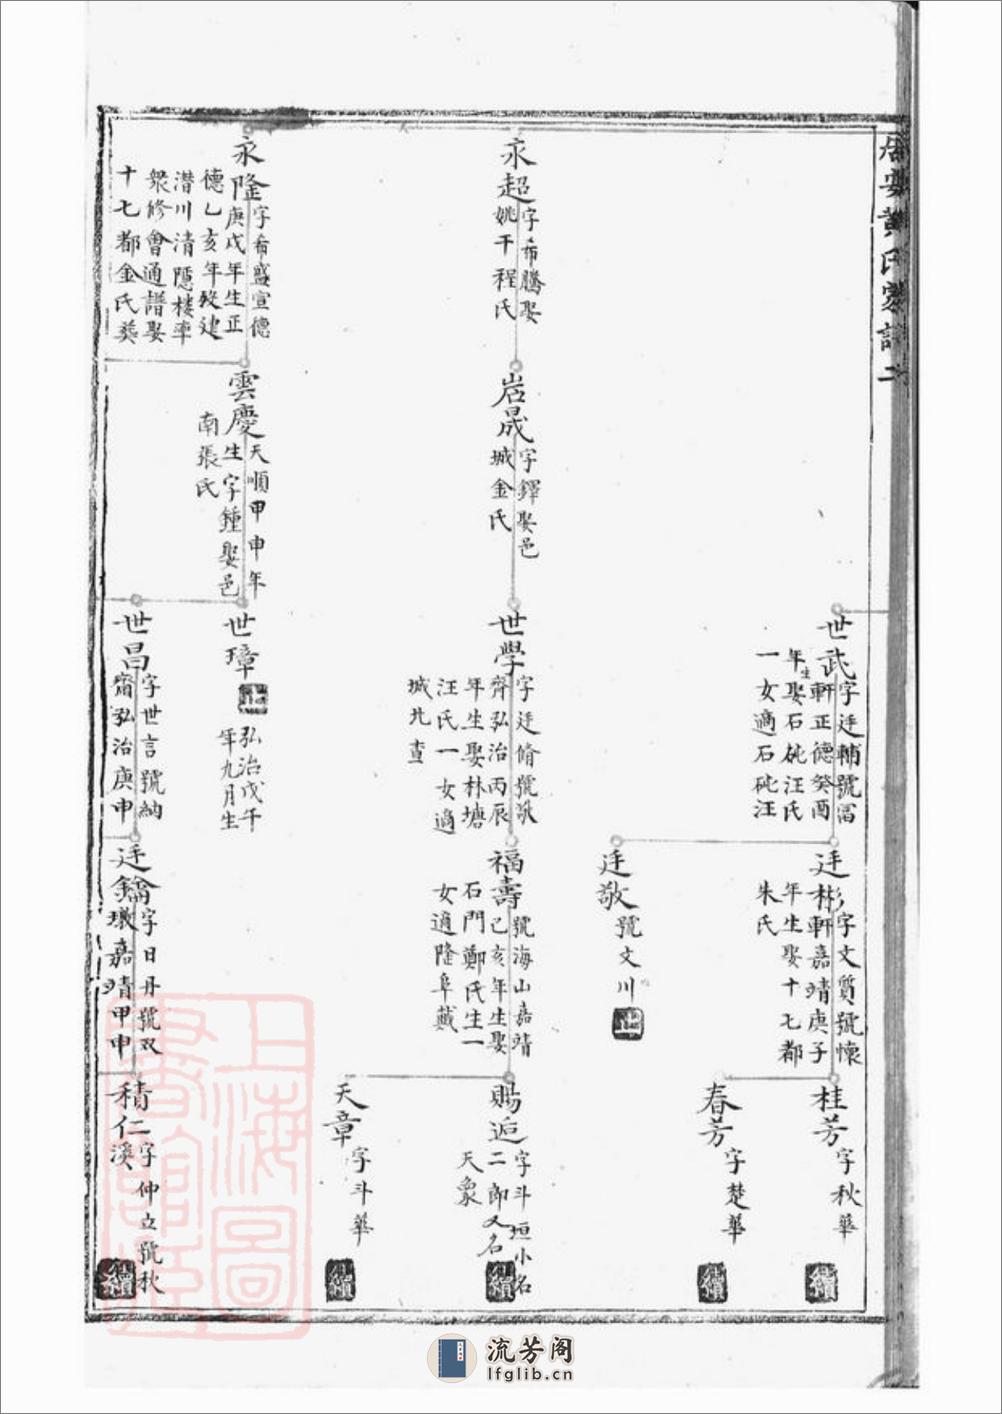 居安黃氏家譜二
世武
字廷輔號富
軒正德癸酉
年生娶石砘汪氏
一女適石砘汪
廷彬
字文質號懷
軒嘉靖庚子
年生娶十七都
朱氏
桂芳
字秋華
續
春芳
字楚華
續
廷敬
號文川
止
永超
字希騰娶
姚干程氏
岩晟
字鐸娶邑
城金氏
世學
字廷脩號
齋弘治丙辰
年生娶林塘
汪氏一女適
城北查
福壽
號海山嘉靖
己亥年生娶
石門鄭氏生一
女適隆阜戴
賜逅
字斗垣小名
二郎又名
天象
續
天章
字斗華
續
永隆
字希盛宣德
庚戌年生正
德乙亥年歿建
潛川清隱樓率
衆修會通譜娶
十七都金氏葬
雲慶
天順甲申年
生字鍾娶邑
南張氏
世璋
弘治戊午
年九月生
止
世昌
字世言號納
齋弘治庚申
廷鑰
字日丹號双
墩嘉靖甲申
積仁
字仲立號秋
溪
續
上海圖
書館藏
流芳阁
lfglib.cn